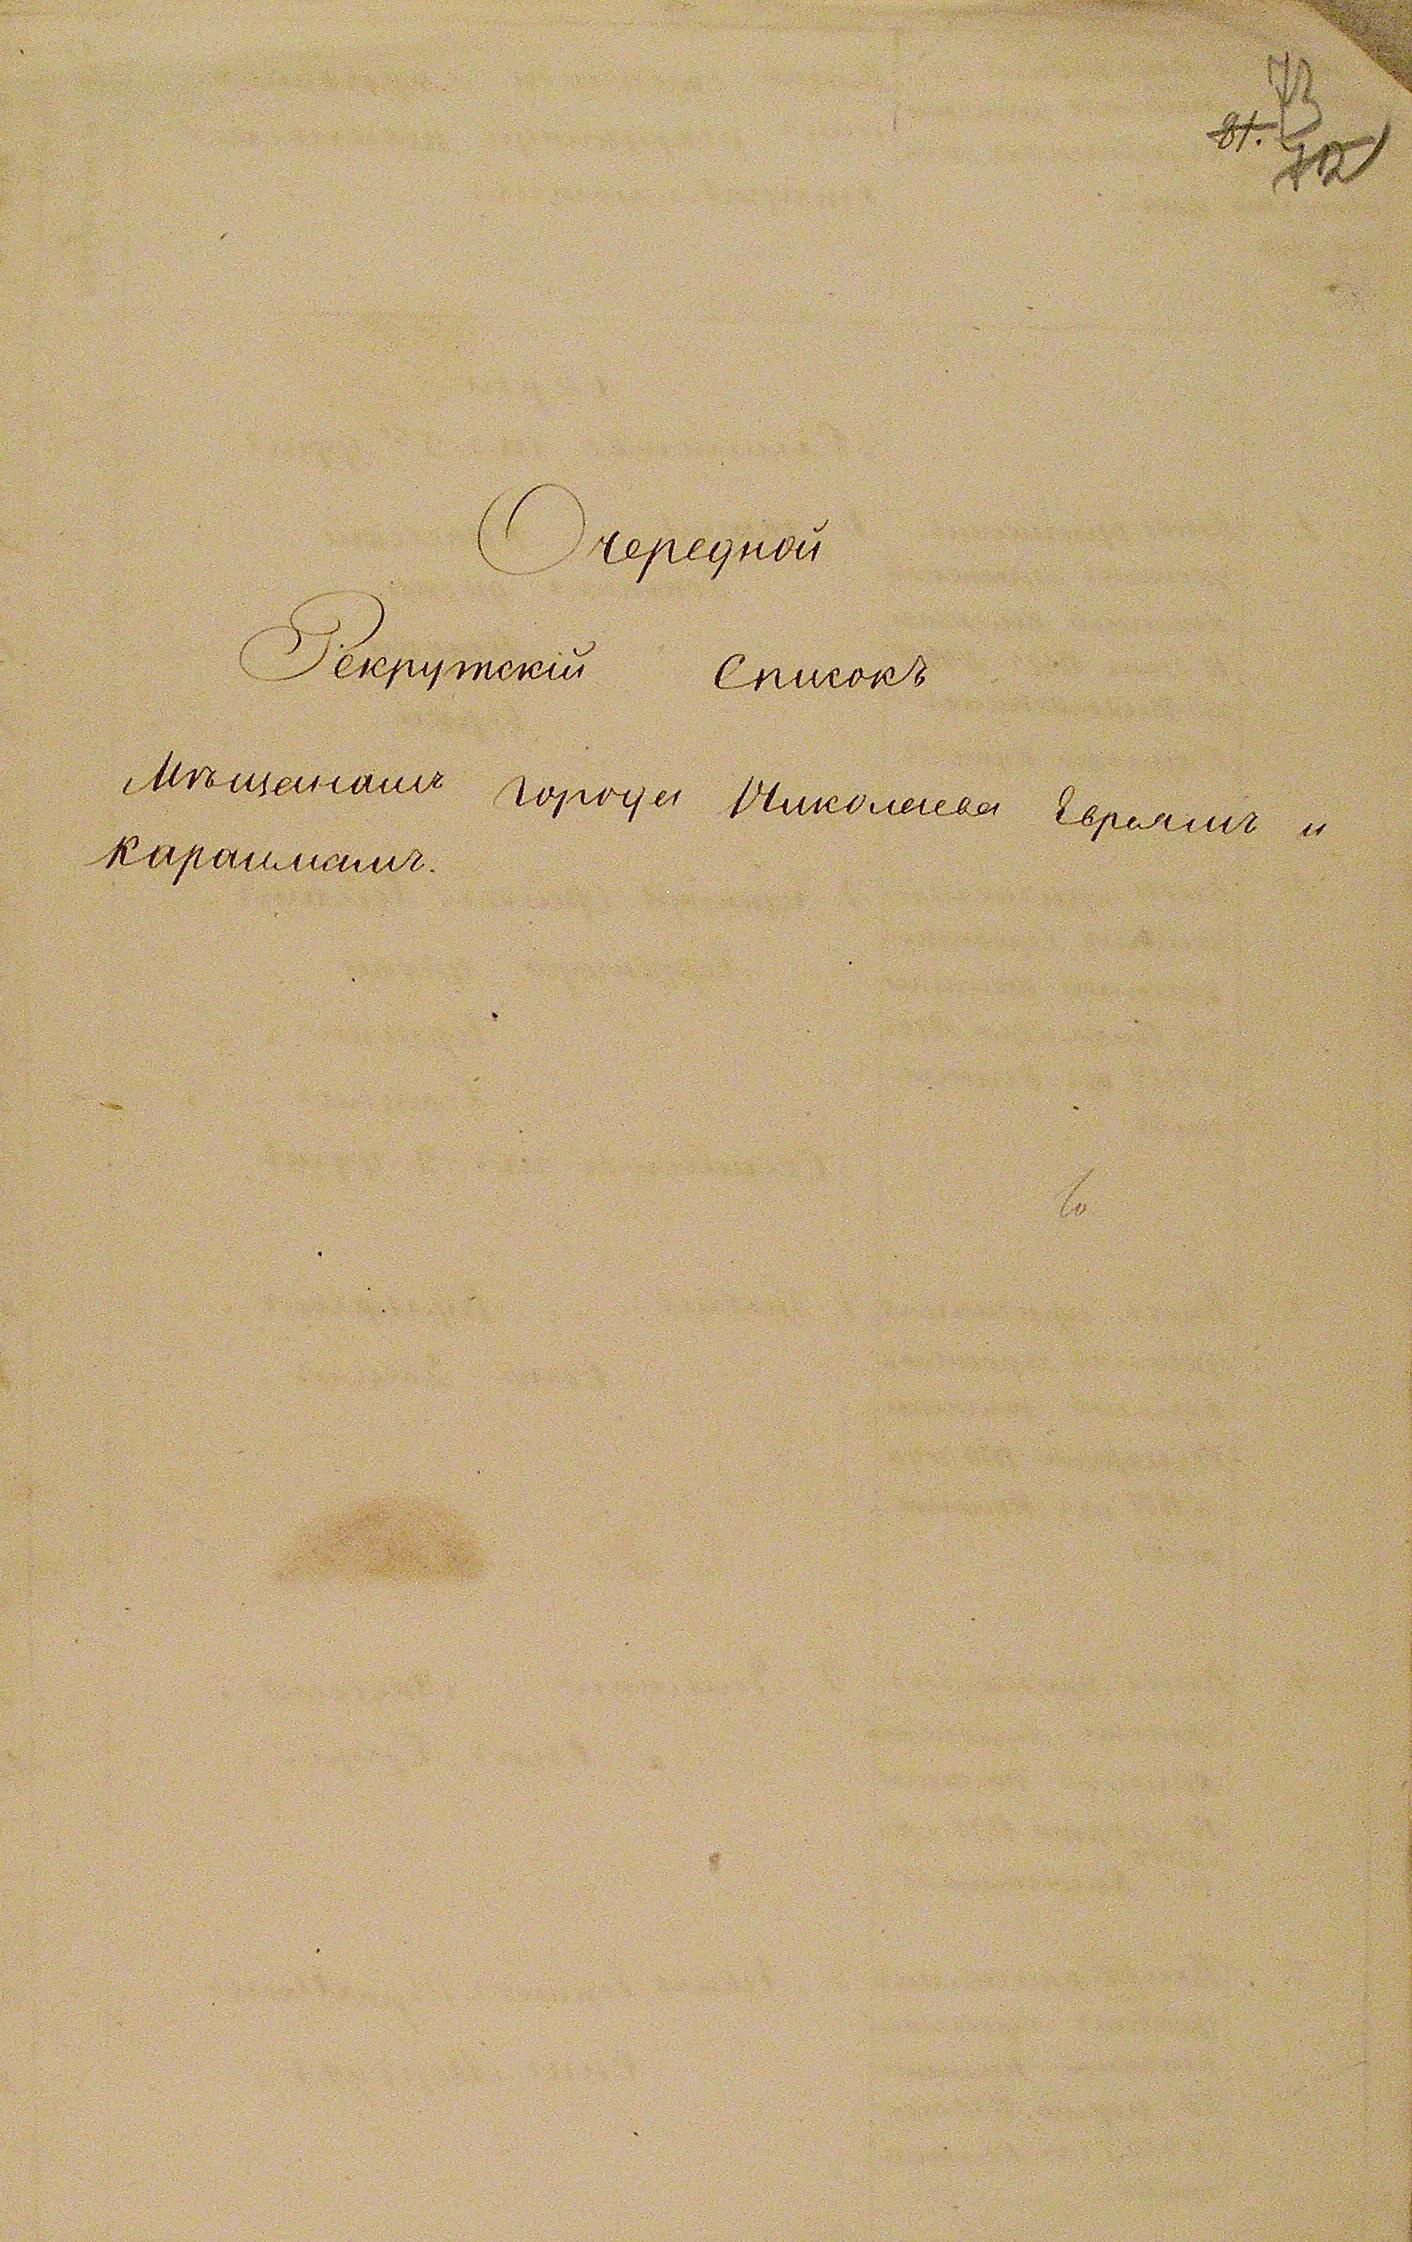 73
81.
72
Очередной
Рекрутскій Списокъ
Мѣщанамъ города Николаева Евреямъ и
караимамъ.